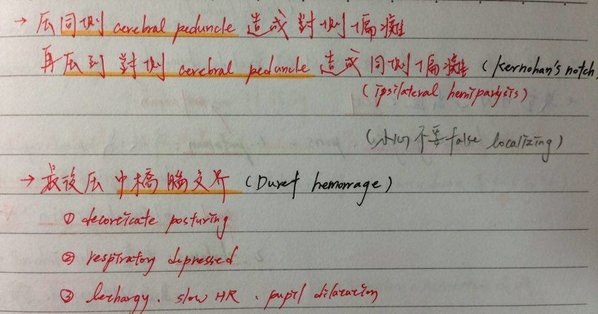 → 压同側 cerebral peduncle 造成對側偏癱
再压到 對側 cerebral peduncle 造成 同側偏癱 (Kernohan's notch,
(ipsilateral hemiparlysis)
(小心不要 false localizing)
→ 最後压 中橋腦交界 (Duret hemorrage)
① decorticate posturing
② respiratory depressed
③ lethargy. slow HR. pupil dilatation